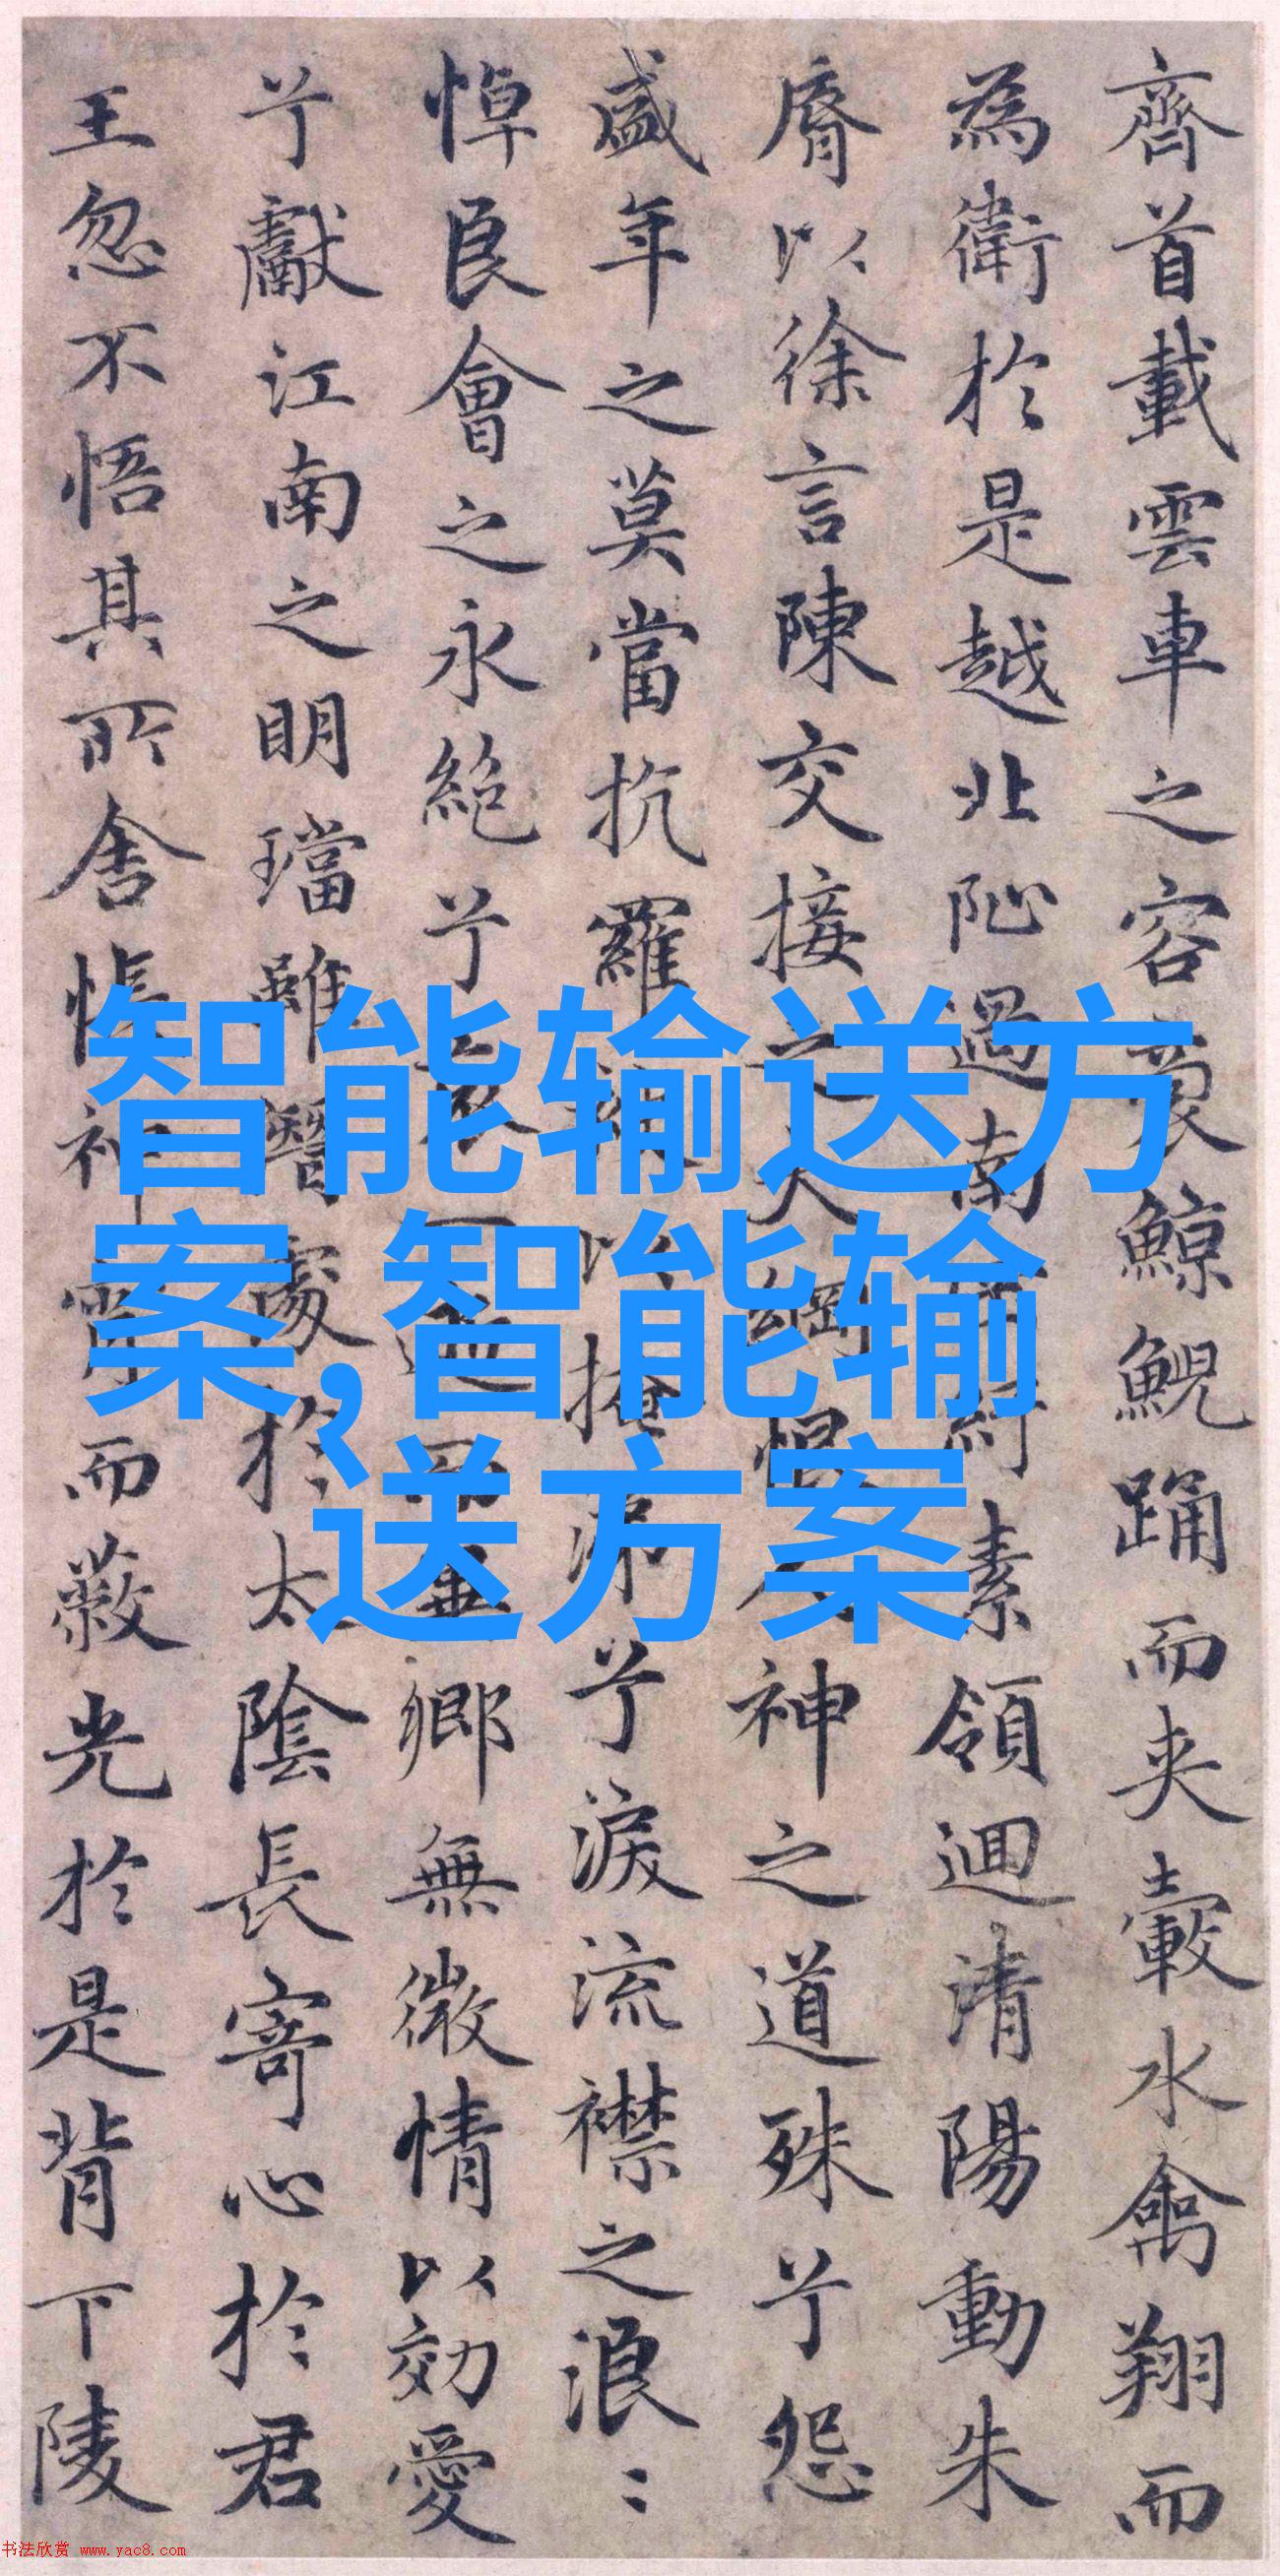 齊首載雲車之容裔鯨鯢踊而夾轂水禽翔而
為衛於是越北阯過南岡紆素領迴清陽動朱
脣以徐言陳交接之大綱恨人神之道殊兮怨
盛年之莫當抗羅袂以掩涕兮淚流襟之浪〻
悼良會之永絕兮哀一逝而異鄉無微情以効愛
兮獻江南之明璫雖潛處於太陰長寄心於君
王忽不悟其所舍悵神宵而蔽光於是背下陵
智能输送方
案,智能输
送方案
书法欣赏 www.yac8.com